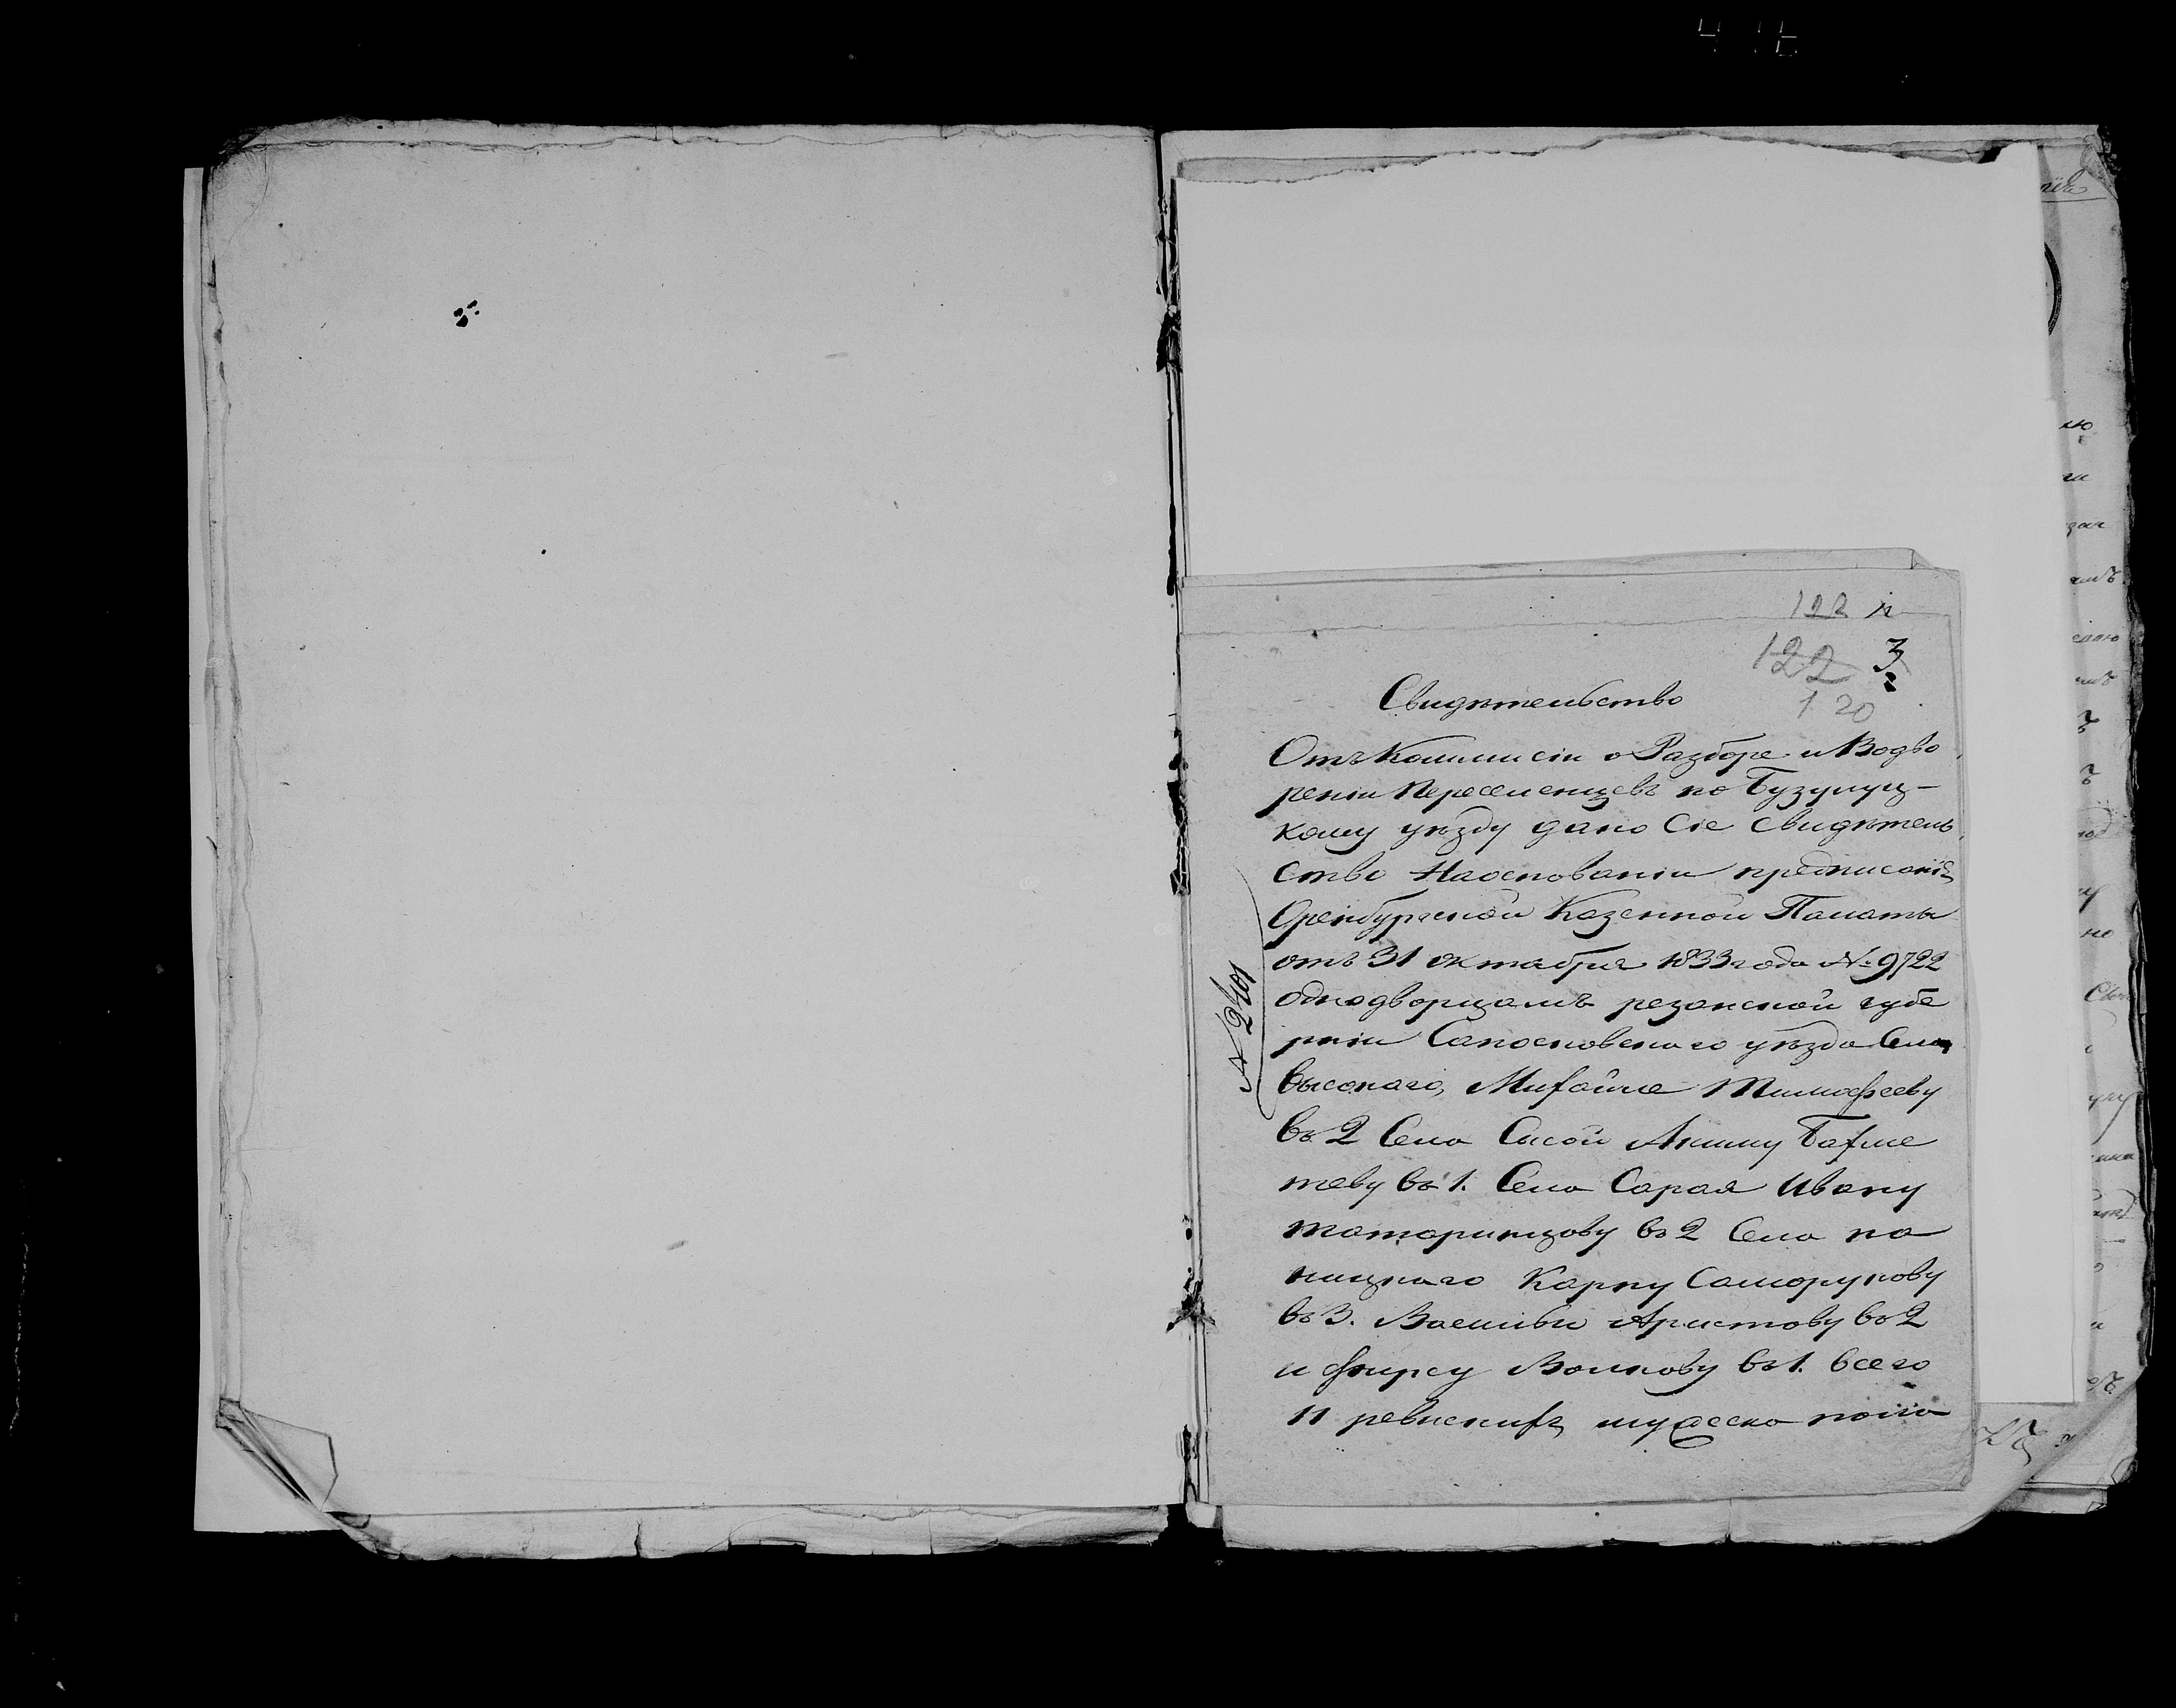 122
122 3
120
Свидѣтельство
Отъ Коммисіи о Разборе и Водво
реніи Переселенцевъ по Бузулуц-
кому уѣзду дано Сіе Свидѣтель
ство На основаніи предписанія
Оренбургской Казенной Палаты
отъ 31 октября 1833 года № 9722
однодворцамъ резанской губе
рніи Сапожковскаго уѣзда Села
высокаго, Михайле Тимофееву
въ 2 Села Сысои Акиму Бахме
теву въ 1. Села Сарая Ивану
татаринцову въ 2 Села па
ницкаго Карпу Саморукову
въ 3. Василью Аристову въ 2
и фирсу Волкову въ 1. всего
11 ревискихъ мужеска пола
№ 2401